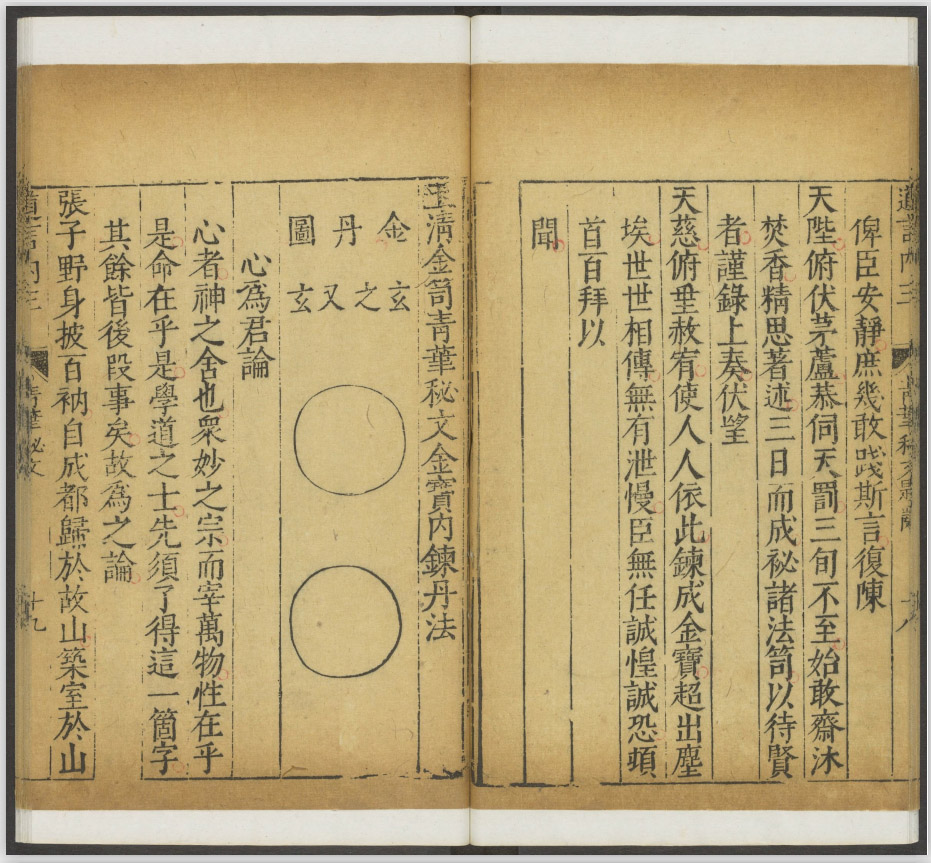 俾臣安靜庶幾敢踐斯言復陳
天陛俯伏茅蘆恭伺天罰三旬不至始敢齋沐
焚香精思著述三日而成祕諸法笥以待賢
者謹錄上奏伏望
天慈俯垂赦宥使人人依此鍊成金寶超出塵
埃世世相傳無有泄慢臣無任誠惶誠恐頓
首百拜以
聞
玉清金笥青華秘文金寶內鍊丹法
金丹圖
玄之又玄
心為君論
心者神之舍也衆妙之宗而宰萬物性在乎
是命在乎是學道之士先須了得這一箇字
其餘皆後段事矣故為之論
張子野身披百衲自成都歸於故山築室於山
青華秘文
十九